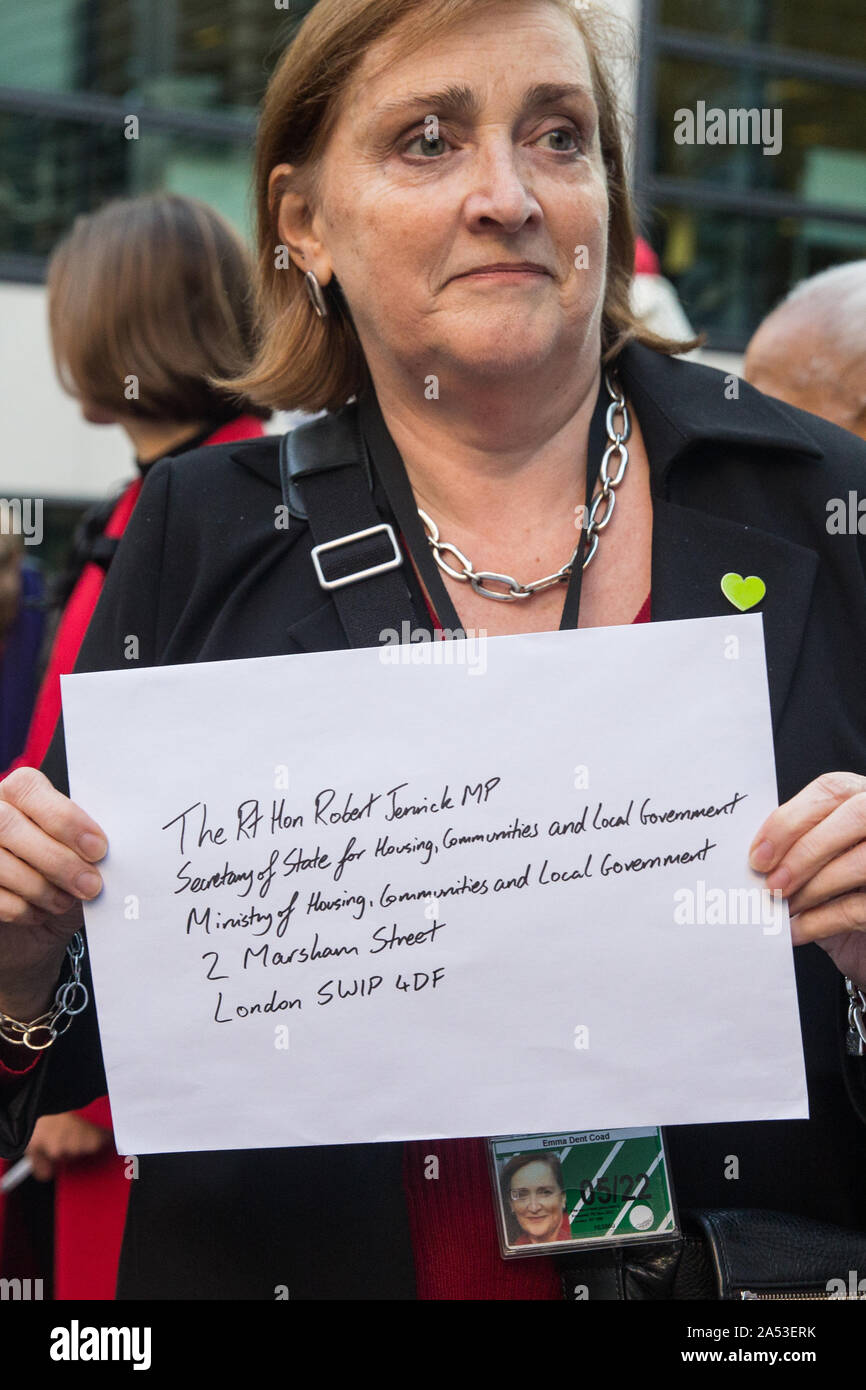 The Rt Hon Robert Jenrick MP
Secretary of State for Housing, Communities and Local Government
Ministry of Housing, Communities and Local Government
2 Marsham Street
London SW1P 4DF
Emma Dent Coad
05/22
alamy
Image ID: 2A53ERK
www.alamy.com